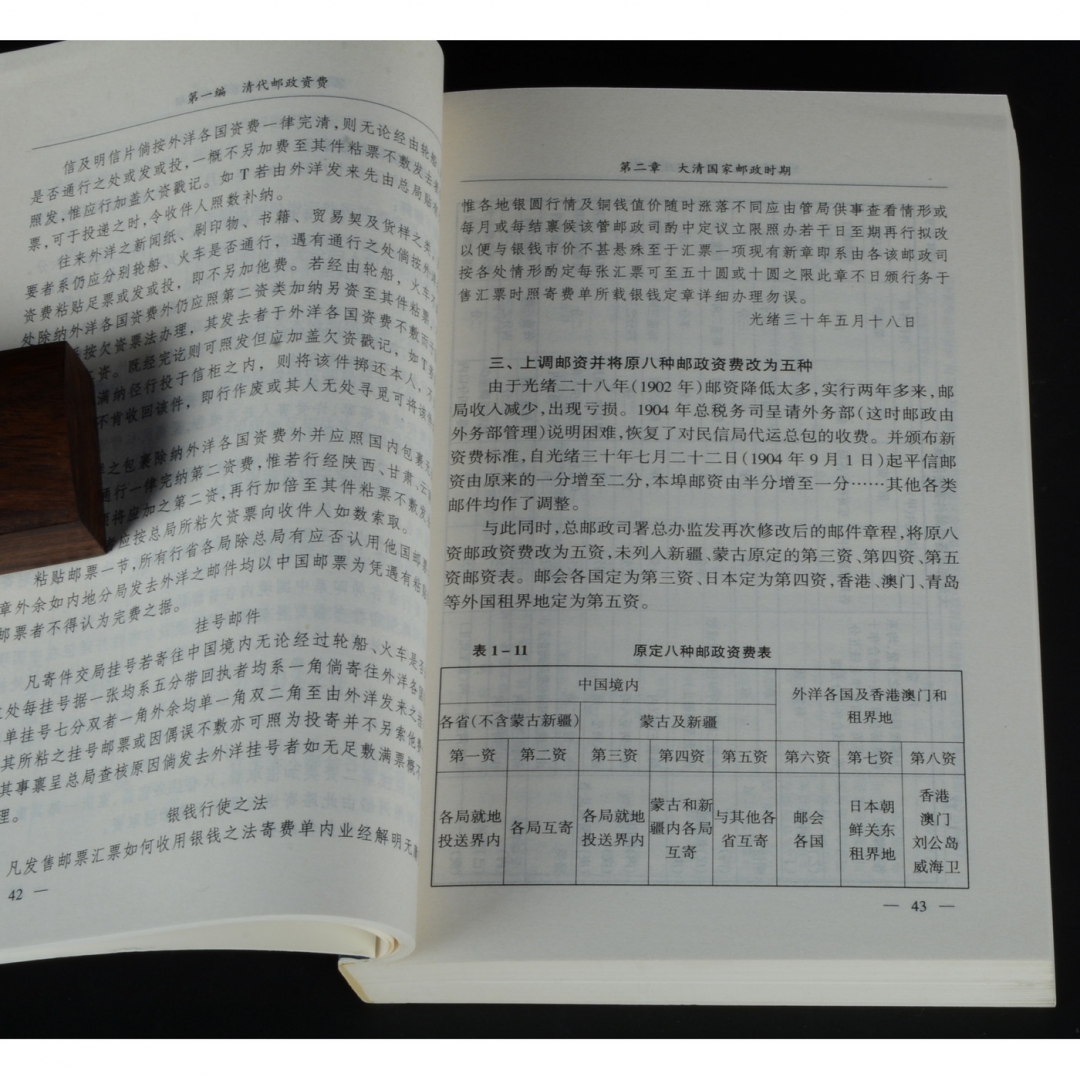 第一编 清代邮政资费
信及明信片倘按外洋各国资费一律完清,则无论经由轮船
是否通行之处或发或投,一概不另加费至其件粘票不敷发去者
照发,惟应行加盖欠资戳记。如T若由外洋发来先由总局贴
票,可于投递之时,令收件人照数补纳。
往来外洋之新闻纸、刷印物、书籍、贸易契及货样之类
要者系仍应分别轮船、火车是否通行,遇有通行之处倘按外
资费粘贴足票或发或投,即不另加他费。若经由轮船,火车
处除纳外洋各国资费外仍应照第二资类加纳另资至其件粘票
按欠资票法办理,其发去者于外洋各国资费不敷而
资。既经完讫则可照发但应加盖欠资戳记,如T
满纳径行投于信柜之内,则将该件掷还本人,不
不肯收回该件,即行作废或其人无处寻觅可将该
之包裹除纳外洋各国资费外并应照国内包裹
通行一律完纳第二资费,惟若行经陕西、甘肃、云
将应加之第二资,再行加倍至其件粘票不敷发
应按总局所粘欠资票向收件人如数索取。
粘贴邮票一节,所有行省各局除总局有应否认用他国邮票
章外余如内地分局发去外洋之邮件均以中国邮票为凭遇有粘贴
邮票者不得认为完费之据。
挂号邮件
凡寄件交局挂号若寄往中国境内无论经过轮船、火车是否
之处每挂号据一张均系五分带回执者均系一角倘寄往外洋各国
单挂号七分双者一角外余均单一角双二角至由外洋发来之
其所粘之挂号邮票或因偶误不敷亦可照为投寄并不另索他
其事禀呈总局查核原因倘发去外洋挂号者如无足敷满票概不
理。
银钱行使之法
凡发售邮票汇票如何收用银钱之法寄费单内业经解明无
42 —
第二章 大清国家邮政时期
惟各地银圆行情及铜钱值价随时涨落不同应由管局供事查看情形或
每月或每结禀候该管邮政司酌中定议立限照办若干日至期再行拟改
以便与银钱市价不甚悬殊至于汇票一项现有新章即系由各该邮政司
按各处情形酌定每张汇票可至五十圆或十圆之限此章不日颁行务于
售汇票时照寄费单所载银钱定章详细办理勿误。
光绪三十年五月十八日
三、上调邮资并将原八种邮政资费改为五种
由于光绪二十八年(1902 年)邮资降低太多,实行两年多来,邮
局收入减少,出现亏损。1904 年总税务司呈请外务部(这时邮政由
外务部管理)说明困难,恢复了对民信局代运总包的收费。并颁布新
资费标准,自光绪三十年七月二十二日(1904 年 9 月 1 日)起平信邮
资由原来的一分增至二分,本埠邮资由半分增至一分……其他各类
邮件均作了调整。
与此同时,总邮政司署总办监发再次修改后的邮件章程,将原八
资邮政资费改为五资,未列入新疆、蒙古原定的第三资、第四资、第五
资邮资表。邮会各国定为第三资、日本定为第四资,香港、澳门、青岛
等外国租界地定为第五资。
表 1-11 原定八种邮政资费表
中国境内
外洋各国及香港澳门和
租界地
各省(不含蒙古新疆) 蒙古及新疆
第一资 第二资 第三资 第四资 第五资 第六资 第七资 第八资
各局就地
投送界内
各局互寄
各局就地
投送界内
蒙古和新
疆内各局
互寄
与其他各
省互寄
邮会
各国
日本朝
鲜关东
租界地
香港
澳门
刘公岛
威海卫
— 43 —